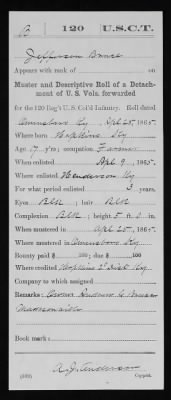 B | 120 | U.S.C.T.
Jefferson Bruce
Appears with rank of
Muster and Descriptive Roll of a Detach-
ment of U. S. Vols. forwarded
for the 120 Reg't U.S. Col'd Infantry. Roll dated
Owensboro Ky Apl 25, 1865.
Where born Hopkins Ky
Age 17 y'rs; occupation Farmer
When enlisted Apl 9, 1865.
Where enlisted Henderson Ky
For what period enlisted 3 years.
Eyes Blk; hair Blk
Complexion Blk; height 5 ft. 0 in.
When mustered in Apl 25, 1865.
Where mustered in Owensboro Ky
Bounty paid $ 100; due $ 100
Where credited Hopkins 2d Dist Ky
Company to which assigned
Remarks: Owner
Madisonville
Book mark:
A. J. Anderson
(339) Copyist.